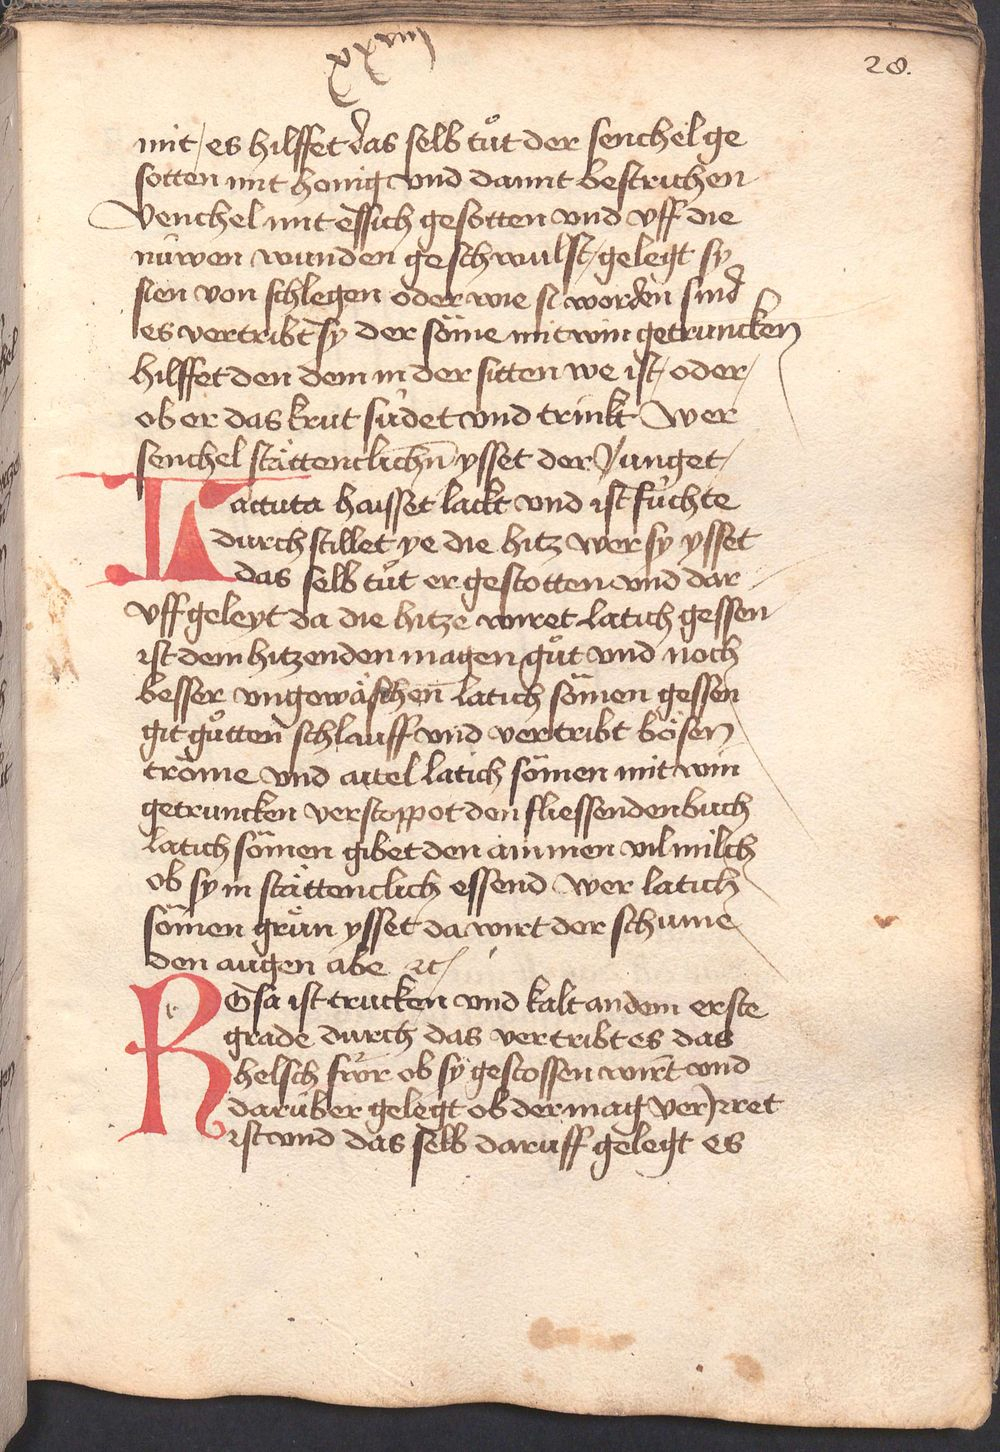 xxviij
28.
mit / es hilffet das selb tůt der fenchel ge
sotten mit honig vnd damit bestrichen
Venchel mit essich gesotten vnd vff die
nüwen wunden geschwulst / gelegt sy
sien von schlegen oder wie si worden sind
es vertribt sy der söme mit win getruncken
hilffet den dem in der sitten we ist / oder /
ob er das krut südet vnd trinkt Wer
fenchel stättenclichn̄ ysset der Junget /
Lactuta haisset lackt vnd ist füchte
durch stillet ye die hitz wer sy ysset
das selb tůt er gescotten vnd dar
vff geleyt da die hitze wiret Latich gessen
ist dem hitzenden magen gůt vnd noch
besser vngewäschen Latich sömen gessen
git gůtten schlauff vnd vertribt bösen
tröme vnd aitel latich sömen mit win
getruncken verstoppot den fliessenden buch
Latich sömen gibet den ammen vil milch
ob sy in stättenclich essend Wer latich
sömen grün ysset da wirt der schume
den augen abe ꝛc /
Rosa ist trucken vnd kalt an dem erste
grade durch das vertribt es das
helsch für ob sy gestossen wirt vnd
darüber gelegt ob der mag verJrret
ist vnd das selb daruff gelegt es